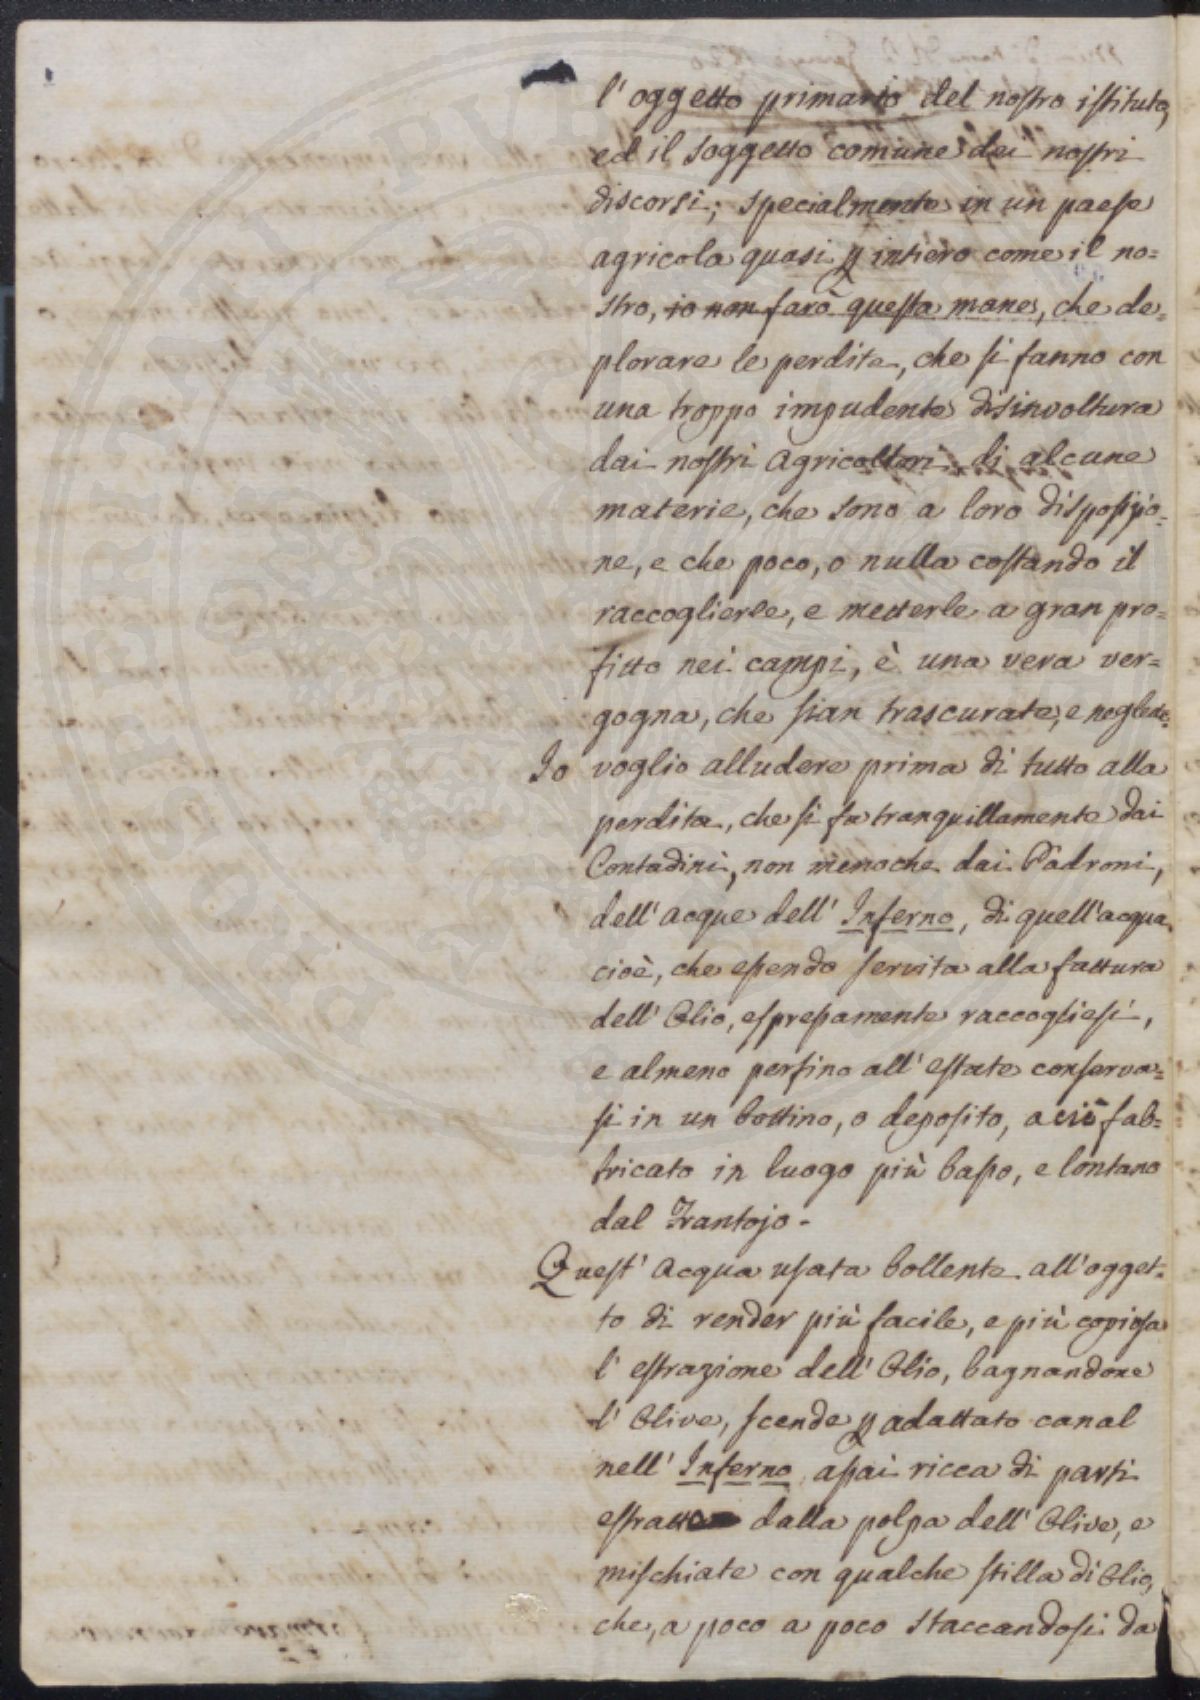 l'oggetto primario del nostro istituto,
ed il soggetto comune dei nostri
discorsi; specialmente in un paese
agricola quasi p intiero come il no=
stro, io non farò questa mane, che de=
plorare le perdite, che si fanno con
una troppo impudente disinvoltura
dai nostri agricoltori di alcune
materie, che sono a loro disposizio=
ne, e che poco, o nulla costando il
raccoglierle, e metterle a gran pro=
fitto nei campi, è una vera ver=
gogna, che sian trascurate, e neglette.
Io voglio alludere prima di tutto alla
perdita, che si fa tranquillamente dai
Contadini, non menoche dai Padroni,
dell'acque dell' Inferno, di quell'acqua
cioè, che essendo servita alla fattura
dell' Olio, espressamente raccogliesi,
e almeno perfino all'estate conserva=
si in un bottino, o deposito, a ciò fab=
bricato in luogo più basso, e lontano
dal Frantojo -
Quest' acqua usata bollente all'ogget=
to di render più facile, e più copiosa
l'estrazione dell' Olio, bagnandone
l' Olive, scende p adattato canal
nell' Inferno assai ricca di parti
estratte dalla polpa dell' Olive, e
mischiate con qualche stilla di Olio,
che, a poco a poco staccandosi da
PROSPERITATI PVB